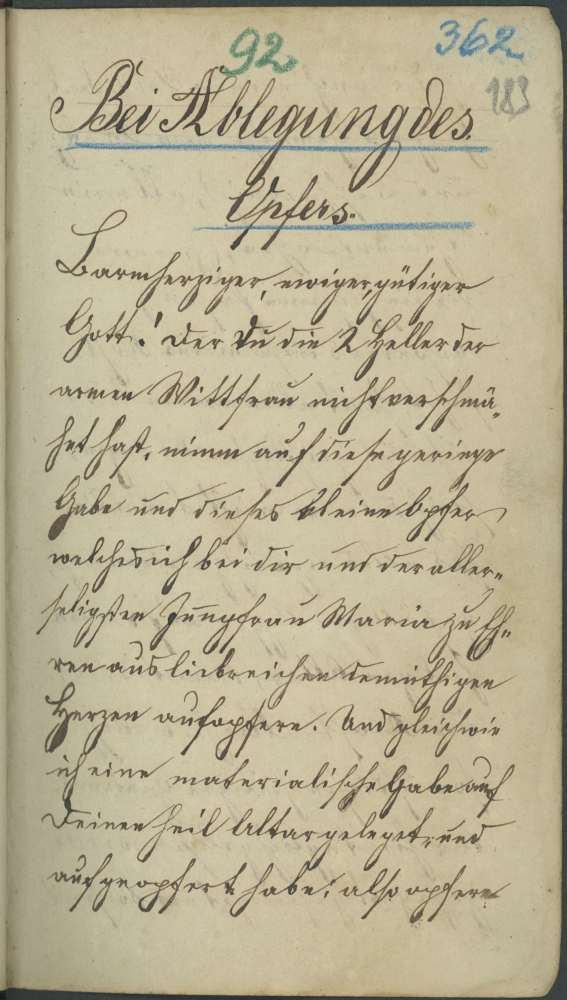 92
362
183
Bei Ablegung des
Opfers.
Barmherziger, ewiger, gütiger
Gott! Der Du die 2 Heller der
armen Wittfrau nicht verschmä„
het hast, nimm auf diese geringe
Gabe und dieses kleine Opfer
welches ich bei dir und der aller„
seligsten Jungfrau Maria zu Eh„
ren aus liebreichen demüthigen
Herzen aufopfere. Und gleichwie
ich eine materialische Gabe auf
Deinen heil Altar gelegt, und
aufgeopfert habe; also opfere